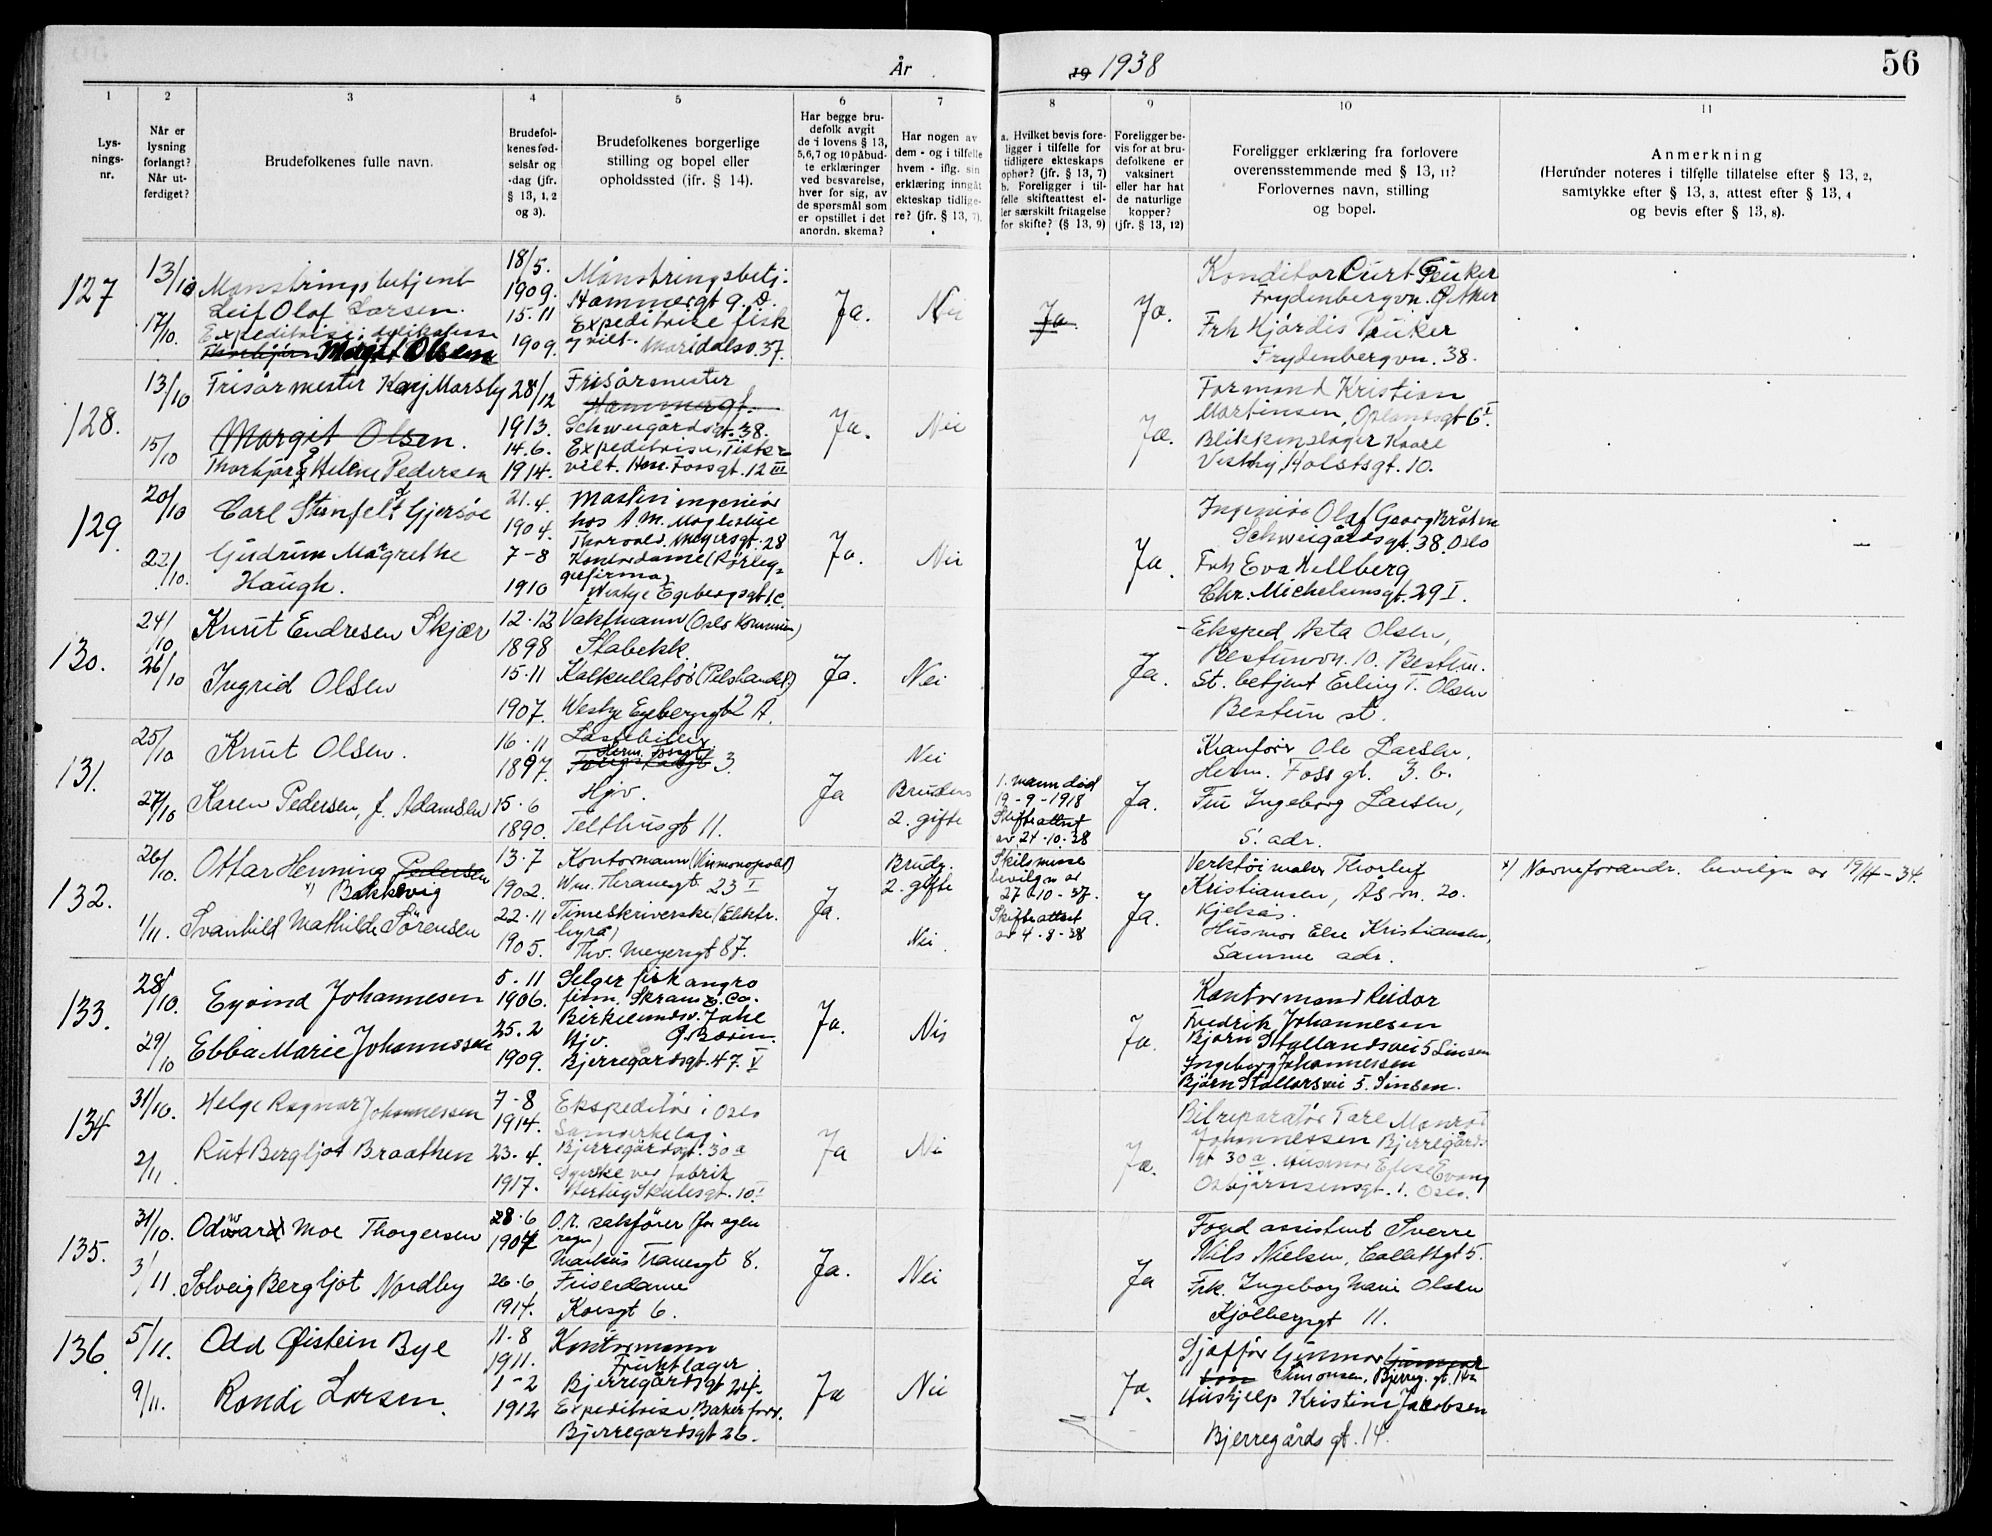 År
19 1938
56
1
2
3
4
5
6
7
8
9
10
11
Lys-
nings-
nr.
Når er
lysning
forlangt?
Når ut-
ferdiget?
Brudefolkenes fulle navn.
Brudefol-
kenes fød-
selsår og
-dag (jfr.
§ 13, 1, 2
og 3).
Brudefolkenes borgerlige
stilling og bopel eller
opholdssted (ifr. § 14).
Har begge bru-
defolk avgit
de i lovens § 13,
5,6,7 og 10 påbud-
te erklæringer
ved besvarelse,
hver for sig, av
de spørsmål som
er opstillet i det
anordn. skema?
Har nogen av
dem - og i tilfelle
hvem - iflg. sin
erklæring inngått
ekteskap tidlige-
re? (jfr. § 13, 7).
a. Hvilket bevis fore-
ligger i tilfelle for
tidligere ekteskaps
ophør? (jfr. § 13, 7)
b. Foreligger i til-
felle skifteattest el-
ler særskilt fritagelse
for skifte? (§ 13, 9)
Foreligger be-
vis for at bru-
defolkene er
vaksinert
eller har hat
de naturlige
kopper?
(jfr. § 13, 12)
Foreligger erklæring fra forlovere
overensstemmende med § 13, 11?
Forlovernes navn, stilling
og bopel.
Anmerkning
(Herunder noteres i tilfelle tillatelse efter § 13, 2,
samtykke efter § 13, 3, attest efter § 13, 4
og bevis efter § 13, 8).
127
13/10
17/10.
Mønstringsbetjent
Leif Olaf Larsen.
Expeditrise i delikatesse
Thorbjørg Margit Olsen
18/5.
1909.
15.11
1909.
Mønstringsbetj.
Hammergt 9. D.
Expeditrise fisk
og vilt. Maridalsv. 37.
Ja.
Nei
Ja.
Ja.
Konditor Curt Peuker
Frydenbergvn. Ø. Aker
Frk Hjørdis Peuker
Frydenbergvn. 38.
128.
13/10
15/10
Frisørmester Kaj Morsby
Margit Olsen.
Thorbjørg Helene Pedersen
28/12
1913.
14.6.
1914.
Frisørmester
Hammergt.
Schweigårdsgt. 38.
Expeditrise, Fisk &
vilt. Hm. Fossgt. 12 III
Ja.
Nei
Ja.
Formand Kristian
Martinsen, Oplandsgt 6 I.
Blikkenslager Kaare
Vestby, Holstsgt. 10.
129.
20/10
22/10.
Carl Stenfeldt Gjersøe
Gudrun Margrethe
Haugh.
21.4.
1904.
7-8
1910
Maskiningeniør
hos A.M. Møglestue
Thorvald Meyersgt. 28
Kontordame (Rørleg-
gerfirma)
Westye Egebergsgt 1c.
Ja.
Nei
Ja.
Ingeniør Olaf Georg Bråten
Schweigårdsgt. 38. Oslo
Frk Eva Hellberg
Chr. Michelsensgt. 29 I.
130.
24/10
26/10
Knut Endresen Skjær
Ingrid Olsen
12.12
1898
15.11
1907.
Vaktmann (Oslo Kommune)
Stabekk
Kalkullatør (Pelshandel)
Westye Egebergsgt 2 A.
Ja.
Nei
Ja.
Eksped. Asta Olsen,
Bestumvn. 10. Bestum.
St. betjent Erling T. Olsen
Bestum st.
131.
25/10
27/10
Knut Olsen.
Karen Pedersen, f. Adamsen
16.11
1897.
15.6
1890.
Lastebileier
Herm. Fossgt. 3.
Hjv.
Telthusgt 11.
Ja
Nei
Bruden
2. gifte
1. mann død
19-9-1918
Skifteattest
av 24.10.38
Ja.
Kranfører Ole Larsen,
Herm. Foss gt. 3. b.
Fru Ingeborg Larsen,
s. adr.
132.
26/10.
1/11.
Ottar Henning Pedersen
x) Bakkevig
Svanhild Mathilde Sørensen
13.7
1902.
22.11
1905.
Kontormann (Vinmonopolet)
Wm. Thranesgt. 23 I
Timeskriverske (Elektr.
byrå)
Thv. Meyersgt 87.
Ja.
Brudg.
2. gifte
Nei
Skilsmisse
bevilgn. av
27-10-37.
Skifteattest
av 4-8-38
Ja.
Verktøimaker Thorleif
Kristiansen, Ås vn. 20.
Kjelsås.
Husmor Else Kristiansen,
Samme adr.
x) Navneforandr. bevilgn av 19/4-34.
133.
28/10.
29/10
Eyvind Johannesen
Ebba Marie Johannessen
5.11
1906.
25.2
1909.
Selger fisk angro
firm. Skram & Co.
Birkelundsv. Jahr
Hjv. Ø. Bærum.
Bjerregårdsgt. 47. V
Ja.
Nei
Ja.
Kontormand Reidar
Fredrik Johannesen
Bjørn Stallaresvei 5 Sinsen
Ingeborg Johannessen
Bjørn Stallaresvei 5. Sinsen.
134
31/10.
2/11.
Helge Ragnar Johannessen
Rut Bergljot Braathen
7-8
1914.
23.4.
1917.
Ekspeditør i Oslo
Samvirkelag.
Bjerregårdsgt. 30 a
Syerske ver fabrik
Herslebsgt. 10 I
Ja
Nei
Ja.
Bilreparatør Tore Monrad
Johannessen Bjerregårds
gt 30 a. Husmor Else Evang
Osbjørnsensgt. 1. Oslo.
135.
31/10.
3/11.
Odvard Moe Thorgersen
Solveig Bergljot Nordby
28.6
1907
26.6
1914.
O.r. saksfører (for egen
regn.)
Markus Tranesgt 8.
Friserdame
Korsgt 6.
Ja.
Nei
Ja
Foged assistent Sverre
Nils Nielsen, Collettsgt 5.
Frk. Ingeborg Marie Olsen
Kjølberggt 11.
136.
5/11.
9/11.
Odd Øistein Bye
Rondi Larsen.
11-8
1911.
1-2
1912
Kontormann
Fruktlager
Bjerregårdsgt 24.
Expeditrise Bakerforr.
Bjerregårdsgt 26.
Ja
Nei
Ja.
Sjåffør Gunnar
Simonsen, Bjerreg. gt. 14a
Hushjelp Kristine Jacobsen
Bjerregårdsgt. 14.